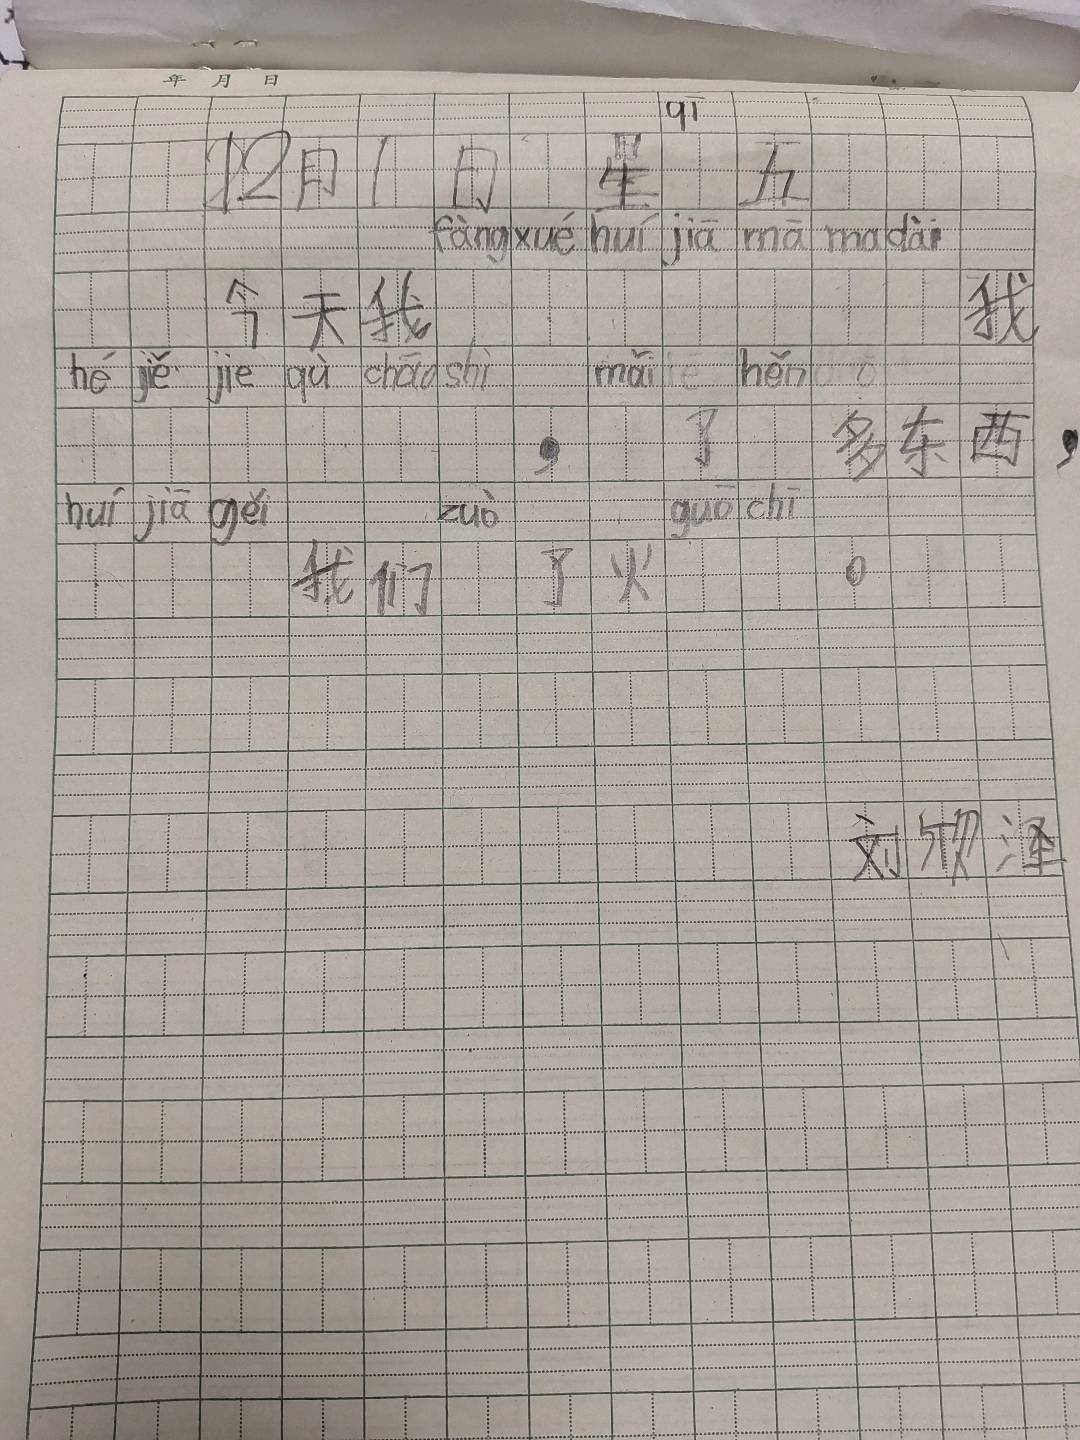 年 月 日
qī
12月1日 星 五
fàng xué huí jiā mā ma dài
今天我 我
hé jiě jie qù chāo shì mǎi hěn
, 了 多东西,
huí jiā gěi zuò guō chī
我们 了火 。
刘欣泽